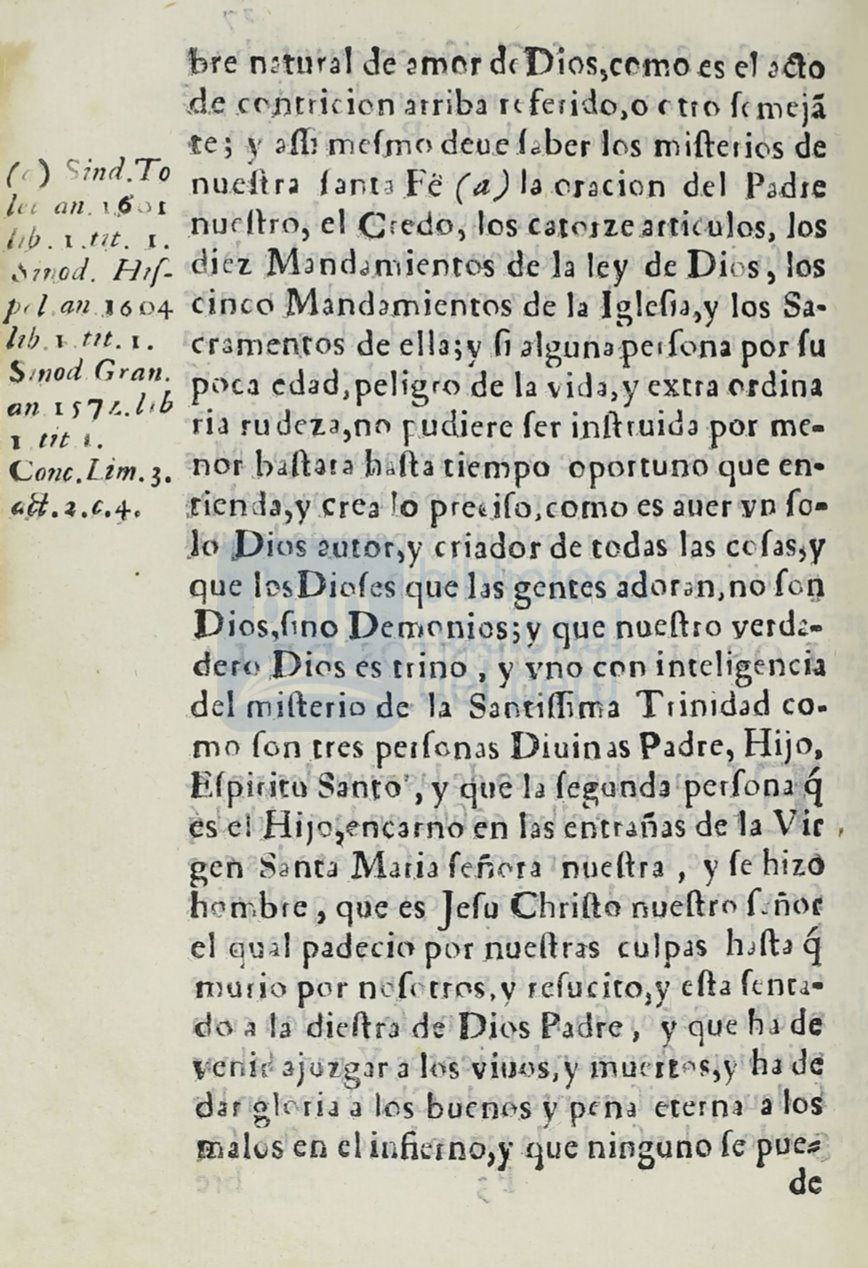 (a) Sind.To
let an. 1601
lib. 1.tit. 1.
Sinod. Hiſ-
pal an 1604
lib. 1 tit. 1.
Sinod Gran.
an 1572. lib
1 tit 1.
Conc.Lim. 3.
act. 2.c.4.
bre natural de amor de Dios,como es el acto
de contricion arriba referido,o otro ſemejã
te; y aſſi meſmo deue ſaber los miſterios de
nueſtra ſanta Fè (a) la oracion del Padre
nueſtro, el Credo, los catorze articulos, los
diez Mandamientos de la ley de Dios, los
cinco Mandamientos de la Igleſia,y los Sa-
cramentos de ella;y ſi alguna perſona por ſu
poca edad,peligro de la vida,y extra ordina
ria rudeza,no pudiere ſer inſtruida por me-
nor baſtara haſta tiempo oportuno que en-
tienda,y crea lo preciſo,como es auer vn ſo-
lo Dios autor,y criador de todas las coſas,y
que los Dioſes que las gentes adoran,no ſon
Dios,ſino Demonios;y que nueſtro verda-
dero Dios es trino , y vno con inteligencia
del miſterio de la Santiſſima Trinidad co-
mo ſon tres perſonas Diuinas Padre, Hijo,
Eſpiritu Santo , y que la ſegunda perſona q́
es el Hijo,encarno en las entrañas de la Vir
gen Santa Maria ſeñora nueſtra , y ſe hizo
hombre , que es Jeſu Chriſto nueſtro ſeñor
el qual padecio por nueſtras culpas haſta q́
murio por noſotros,y reſucito,y eſta ſenta-
do a la dieſtra de Dios Padre , y que ha de
venir ajuzgar a los viuos,y muertos,y ha de
dar gloria a los buenos y pena eterna a los
malos en el infierno,y que ninguno ſe pue-
de